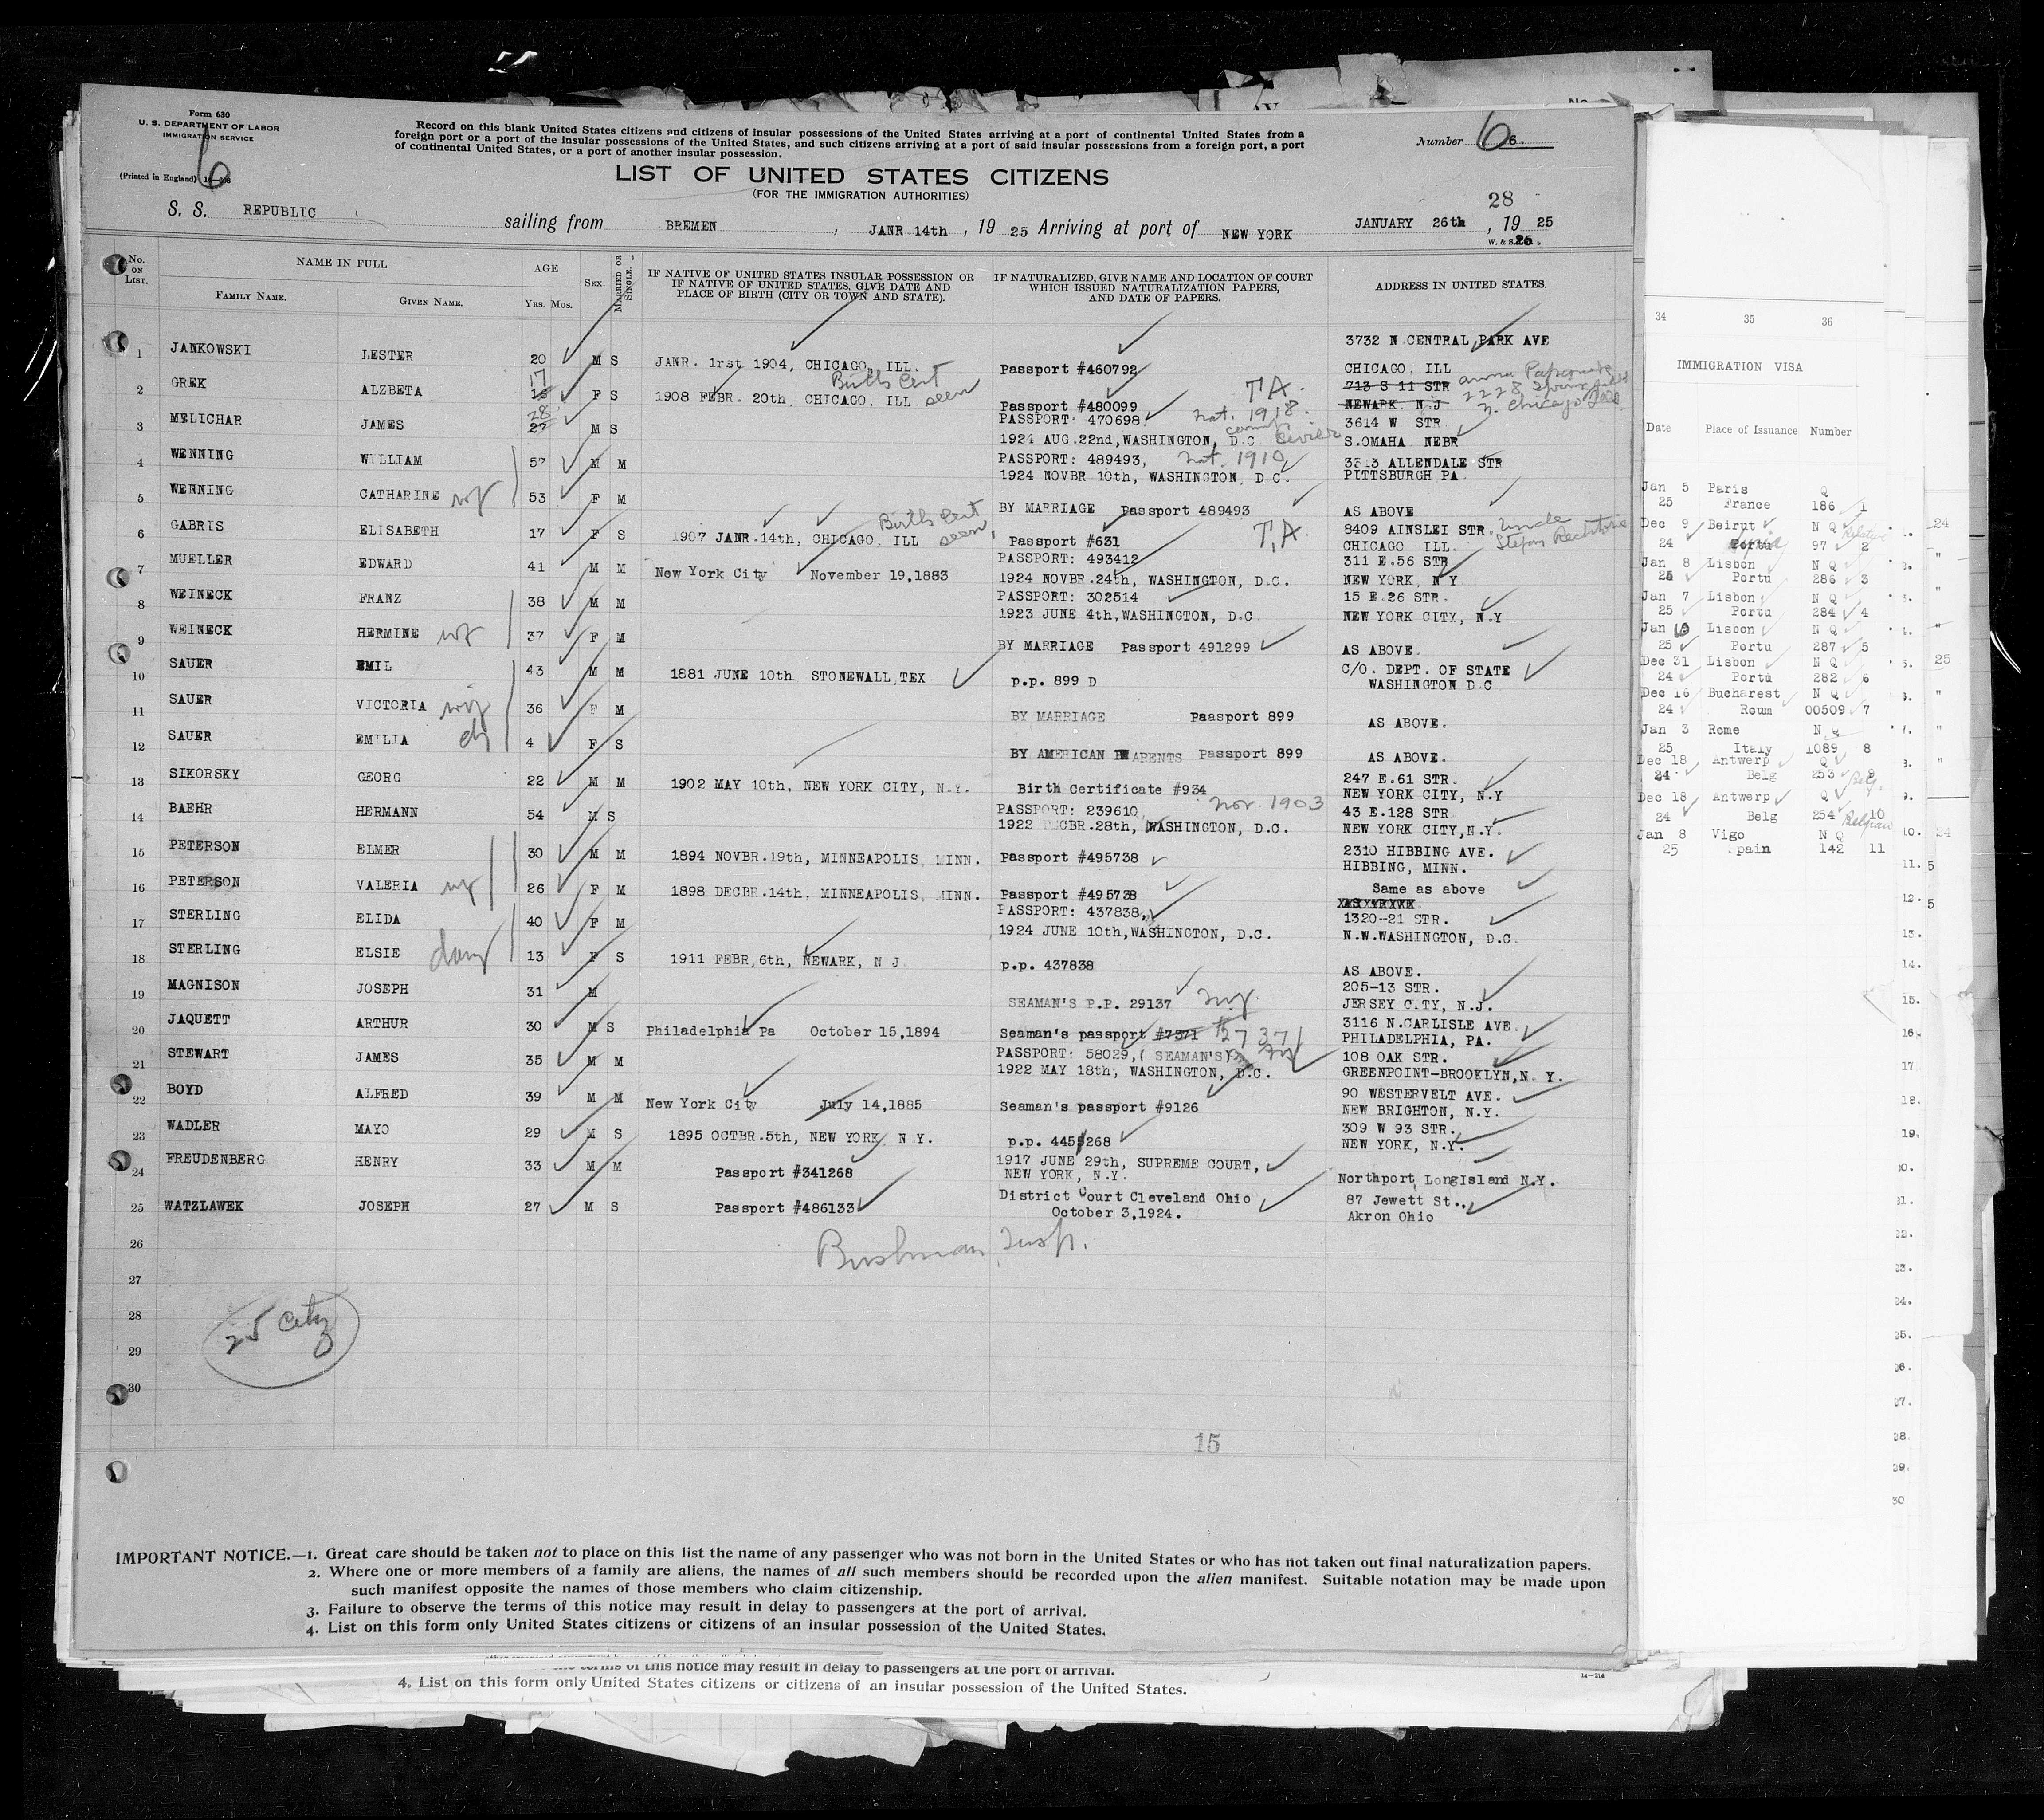 Form 630
U. S. DEPARTMENT OF LABOR
IMMIGRATION SERVICE
(Printed in England)
6
Record on this blank United States citizens and citizens of insular possessions of the United States arriving at a port of continental United States from a
foreign port or a port of the insular possessions of the United States, and such citizens arriving at a port of said insular possessions from a foreign port, a port
of continental United States, or a port of another insular possession.
Number 6 6.
LIST OF UNITED STATES CITIZENS
(FOR THE IMMIGRATION AUTHORITIES)
28
S. S. REPUBLIC sailing from BREMEN, JANR 14th, 19 25 Arriving at port of NEW YORK JANUARY 26th, 19 25
No. ON LIST.
NAME IN FULL
FAMILY NAME. GIVEN NAME.
AGE
YRS. MOS.
SEX.
MARRIED OR SINGLE.
IF NATIVE OF UNITED STATES INSULAR POSSESSION OR
IF NATIVE OF UNITED STATES, GIVE DATE AND
PLACE OF BIRTH (CITY OR TOWN AND STATE).
IF NATURALIZED, GIVE NAME AND LOCATION OF COURT
WHICH ISSUED NATURALIZATION PAPERS,
AND DATE OF PAPERS.
ADDRESS IN UNITED STATES.
1 JANKOWSKI LESTER 20 M S JANR. 1rst 1904, CHICAGO, ILL. Passport #460792 3732 N CENTRAL PARK AVE
CHICAGO ILL
2 GREK ALZBETA 17 F S 1908 FEBR. 20th, CHICAGO, ILL Births Cert seen Passport #480099 T A. 713 S 11 STR
NEWARK N.J
2228
n. Chicago
3 MELICHAR JAMES 28 27 M S PASSPORT: 470698. nat. 1918. 3614 W STR.
1924 AUG.22nd, WASHINGTON, D.C S.OMAHA NEBR
4 WENNING WILLIAM 57 M M PASSPORT: 489493, nat. 1910 3313 ALLENDALE STR
1924 NOVBR 10th, WASHINGTON, D.C. PITTSBURGH PA.
5 WENNING CATHARINE wf 53 F M BY MARRIAGE Passport 489493 AS ABOVE
6 GABRIS ELISABETH 17 F S 1907 JANR.14th, CHICAGO, ILL Births Cert seen, Passport #631 T.A. 8409 AINSLEI STR. Uncle
CHICAGO ILL. Stefan
7 MUELLER EDWARD 41 M M New York City November 19,1883 PASSPORT: 493412 311 E.56 STR
1924 NOVBR.24th, WASHINGTON, D.C. NEW YORK, N Y
8 WEINECK FRANZ 38 M M PASSPORT: 302514 15 E.26 STR.
1923 JUNE 4th, WASHINGTON, D.C NEW YORK CITY, N.Y
9 WEINECK HERMINE wf 37 F M BY MARRIAGE Passport 491299 AS ABOVE.
10 SAUER EMIL 43 M M 1881 JUNE 10th STONEWALL,TEX p.p. 899 D C/O. DEPT. OF STATE
WASHINGTON D.C
11 SAUER VICTORIA wf 36 F M BY MARRIAGE Paasport 899 AS ABOVE.
12 SAUER EMILIA ch 4 F S BY AMERICAN PARENTS Passport 899 AS ABOVE.
13 SIKORSKY GEORG 22 M M 1902 MAY 10th, NEW YORK CITY, N.Y. Birth Certificate #934 247 E.61 STR.
NEW YORK CITY, N.Y
14 BAEHR HERMANN 54 M S PASSPORT: 239610, Nov. 1903 43 E.128 STR
1922 DECBR.28th, WASHINGTON, D.C. NEW YORK CITY,N.Y.
15 PETERSON ELMER 30 M M 1894 NOVBR.19th, MINNEAPOLIS, MINN. Passport #495738 2310 HIBBING AVE.
HIBBING, MINN.
16 PETERSON VALERIA wf 26 F M 1898 DECBR.14th, MINNEAPOLIS, MINN. Passport #495738 Same as above
17 STERLING ELIDA 40 F M PASSPORT: 437838, 1320-21 STR.
1924 JUNE 10th, WASHINGTON, D.C. N.W.WASHINGTON, D.C.
18 STERLING ELSIE daug 13 F S 1911 FEBR,6th, NEWARK, N J p.p. 437838 AS ABOVE.
19 MAGNISON JOSEPH 31 M SEAMAN'S P.P. 29137 205-13 STR.
JERSEY CITY, N.J.
20 JAQUETT ARTHUR 30 M S Philadelphia Pa October 15,1894 Seaman's passport #7371 #27371 3116 N.CARLISLE AVE.
PHILADELPHIA, PA.
21 STEWART JAMES 35 M M PASSPORT: 58029,( SEAMAN'S) 108 OAK STR.
1922 MAY 18th, WASHINGTON, D.C. GREENPOINT-BROOKLYN,N. Y.
22 BOYD ALFRED 39 M M New York City July 14,1885 Seaman's passport #9126 90 WESTERVELT AVE.
NEW BRIGHTON, N.Y.
23 WADLER MAYO 29 M S 1895 OCTBR.5th, NEW YORK N.Y. p.p. 445268 309 W 93 STR.
NEW YORK, N.Y.
24 FREUDENBERG HENRY 33 M M Passport #341268 1917 JUNE 29th, SUPREME COURT,
NEW YORK, N.Y. Northport, LongIsland N.Y.
25 WATZLAWEK JOSEPH 27 M S Passport #486133 District Court Cleveland Ohio 87 Jewett St.,
October 3,1924. Akron Ohio
26 Bushman Insp.
27
28
25 city
29
30
15
IMPORTANT NOTICE.—1. Great care should be taken not to place on this list the name of any passenger who was not born in the United States or who has not taken out final naturalization papers.
2. Where one or more members of a family are aliens, the names of all such members should be recorded upon the alien manifest. Suitable notation may be made upon
such manifest opposite the names of those members who claim citizenship.
3. Failure to observe the terms of this notice may result in delay to passengers at the port of arrival.
4. List on this form only United States citizens or citizens of an insular possession of the United States.
terms of this notice may result in delay to passengers at the port of arrival.
4. List on this form only United States citizens or citizens of an insular possession of the United States.
34 35 36
IMMIGRATION VISA
Date Place of Issuance Number
Jan 5 Paris Q
25 France 186 1
Dec 9 Beirut N Q
24 97 2
Jan 8 Lisbon N Q
25 Portu 286 3
Jan 7 Lisbon N Q
25 Portu 284 4
Jan 10 Lisbon N Q
25 Portu 287 5
Dec 31 Lisbon N Q
24 Portu 282 6
Dec 16 Bucharest N Q
24 Roum 00509 7
Jan 3 Rome N Q
25 Italy 1089 8
Dec 18 Antwerp Q
24 Belg 253 9
Dec 18 Antwerp Q
24 Belg 254 10
Jan 8 Vigo N Q
25 Spain 142 11